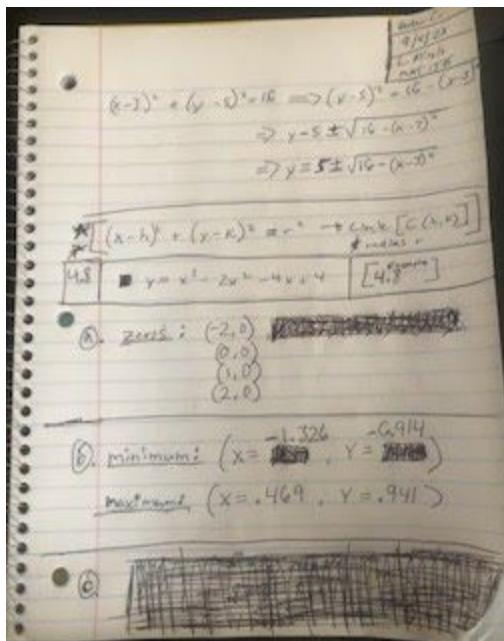 9/4/23
(x-3)² + (y-5)² = 16 => (y-5)² = 16 - (x-3)²
=> y-5 ± √16-(x-3)²
=> y = 5 ± √16-(x-3)²
(x-h)² + (y-k)² = r² → circle [C(h,k)]
radius r
4.8 y = x³ - 2x² - 4x + 4 [4.8 example]
a. zeros: (-2,0)
(0,0)
(1,0)
(2,0)
b. minimum: (x = -1.326, y = -6.914)
maximum: (x = .469, y = .941)
c.